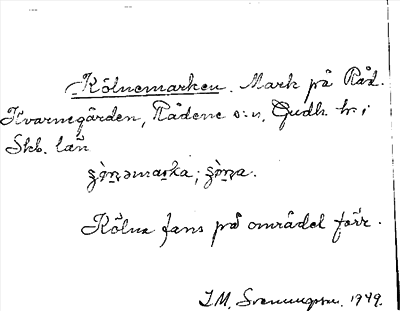 Kölnemarken. Mark på Råd.
Kvarnegården, Rådene s:n, Gudh. hr i
Skb. län
Kölna fans på området förr.
I.M. Svenungson. 1949.